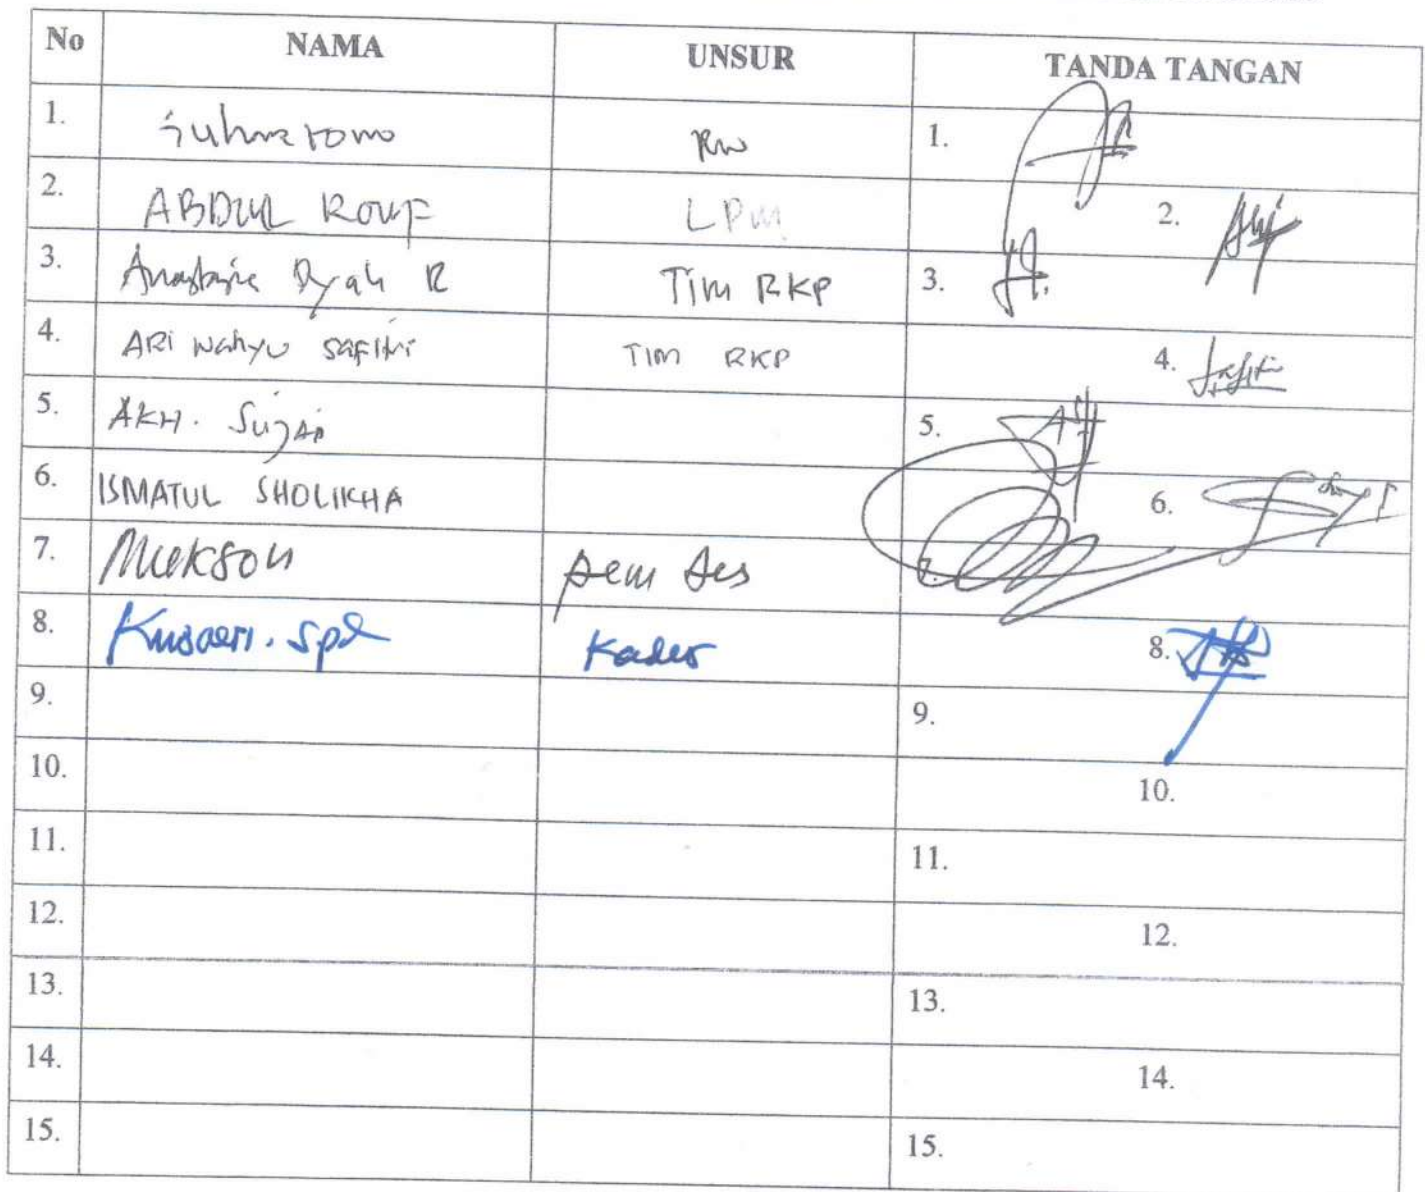 No NAMA UNSUR TANDA TANGAN
1. RW 1.
2. ABDUL ROUF LPM 2.
3. Dyah R Tim RKP 3.
4. ARI Wahyu Safitri TIM RKP 4.
5. AKH. 5.
6. ISMATUL SHOLIKHA 6.
7. Mukson Pem Des 7.
8. Kusaeri. Spd Kader 8.
9. 9.
10. 10.
11. 11.
12. 12.
13. 13.
14. 14.
15. 15.